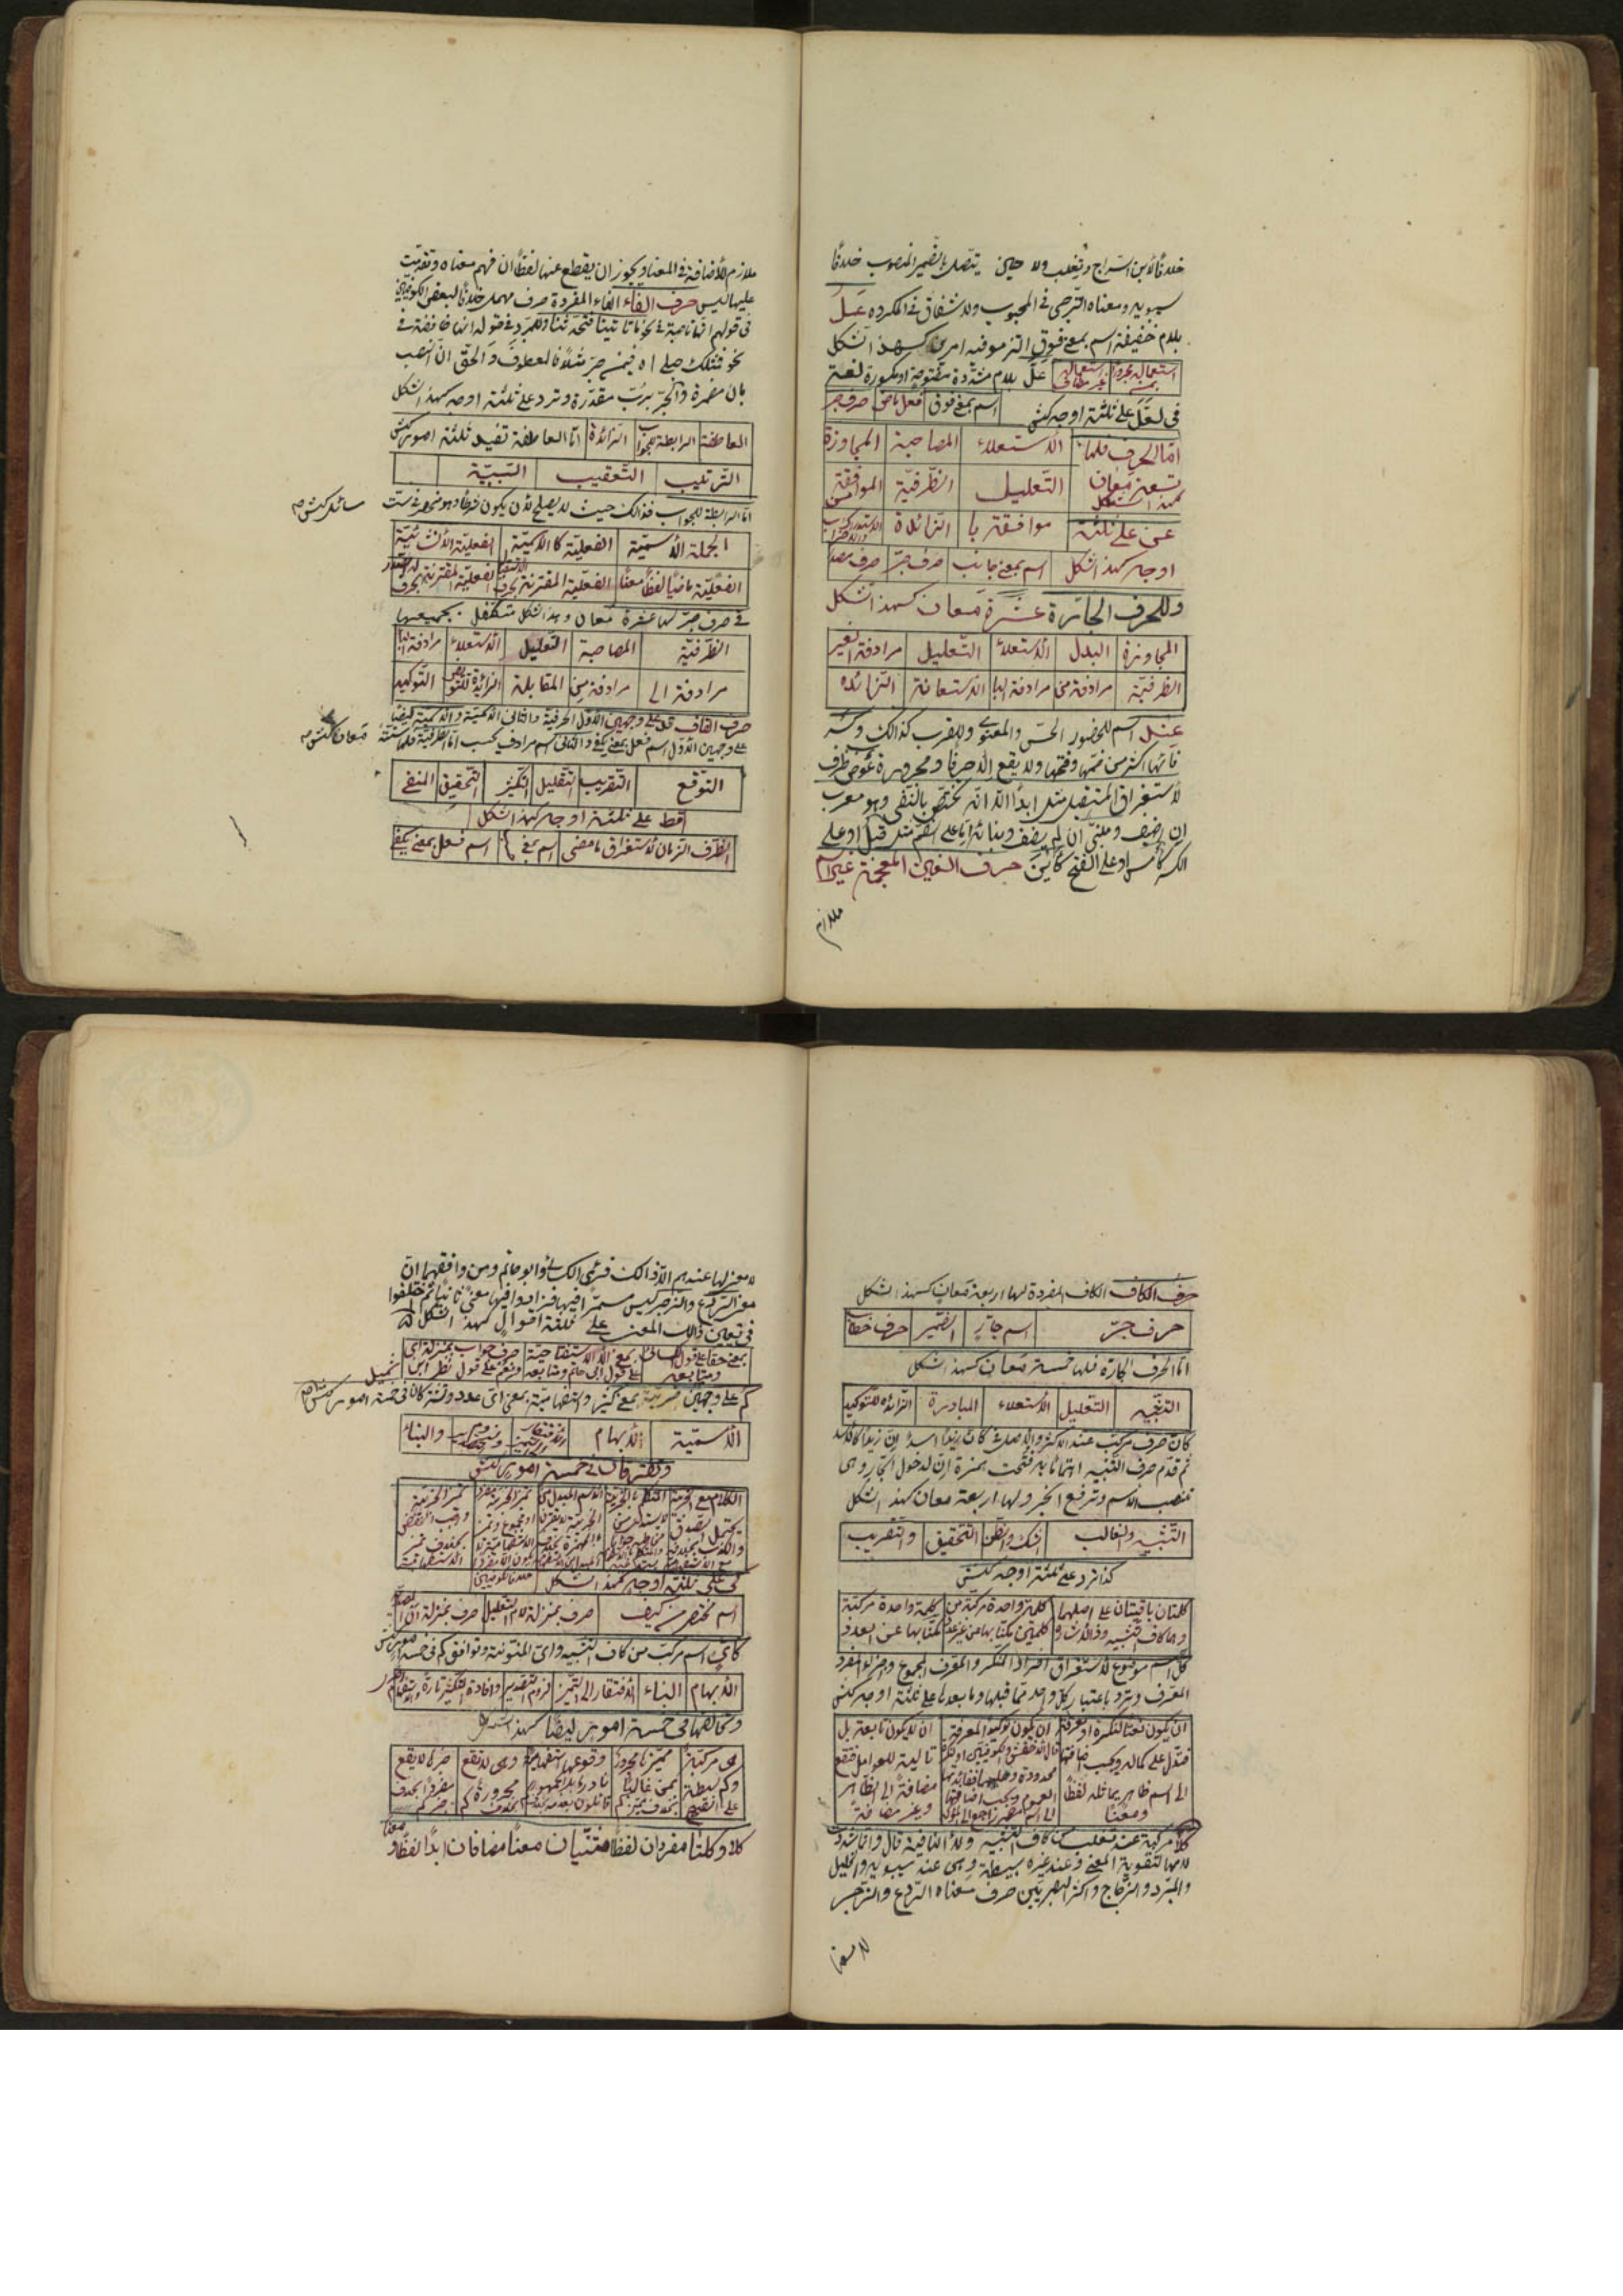 خلافًا لابن السراج وثعلب ولا حين يتصل بالضمير المنصوب خلافًا
سيبويه ومعناه الترجى فى المحبوب والاشفاق فى المكروه عَلُ
بلام خفيفة اسم بمعنى فوق التزموا فيه امرين كهذا الشكل
استعماله مجرورًا بمن استعماله غير مضاف علّ بلام مشددة مفتوحة او مكسورة لغة
فى لعلّ على ثلثة اوجه كهذا اسم بمعنى فوق فعل ماض حرف جر
امّا الحرف فلها الاستعلاء المصاحبة المجاوزة
تسعة معان كهذا الشكل التعليل الظرفيّة الموافقة من
عن على ثلثة موافقة با الزائدة الاستدراك والاضراب
اوجه كهذا الشكل اسم بمعنى جانب حرف جرّ حرف مصدر
وللحرف الجارّة عشرة معان كهذا الشكل
المجاوزة البدل الاستعلاء التعليل مرادفة البعد
الظرفيّة مرادفة من مرادفة البا الاستعانة الزائدة
عند اسم للحضور الحسّى والمعنوى وللقرب كذالك وكسر
فائها اكثر من ضمّها وفتحها ولا يقع الّا ظرفًا او مجرورة عوض ظرف
لاستغراق المستقبل مثل ابدًا الّا انّه يختصّ بالنفى وهو معرب
ان اضيف ومبنىّ ان لم يضف وبنائه امّا على الضمّ مثل قبل او على
الكسر كأمس او على الفتح كأين حرف الغين المعجمة غير اسم
ملازم
ملازم للاضافة فى المعنا ويجوز ان يقطع عنها لفظًا ان فهم معناه وتقدّمت
عليها ليس حرف الفاء الفاء المفردة حرف مهمل خلافًا لبعض الكوفيّين
فى قولهم انّها ناصبة فى نحو ما تأتينا فتحدّثنا وللمبرّد فى قوله انها خافضة فى
نحو فمثلك حبلى اه فيمن جرّ مثلًا فالعطوف والحقّ انّ النصب
بان مضمرة والجرّ بربّ مقدّرة وترد على ثلثة اوجه كهذا الشكل
العاطفة الرابطة للجواب الزائدة امّا العاطفة تفيد ثلثة امور كهش
الترتيب التعقيب السّببيّة
امّا الرابطة للجواب فذالك حيث لا يصلح لأن يكون شرطًا وهو منحصر فى ستّ مسائل كهش
الجملة الاسميّة الفعليّة كالاسميّة الفعليّة الانشائيّة
الفعليّة ماضيًا لفظًا ومعنًا الفعليّة المقترنة بحرف الاستقبال الفعليّة المقترنة بحرف له الصدر
فى حرف جرّ لها عشرة معان وهذا الشكل متكفّل بجميعها
الظرفيّة المصاحبة التعليل الاستعلاء مرادفة البا
مرادفة الى مرادفة من المقابلة الزائدة للتعويض التوكيد
حرف القاف قد على وجهين الاوّل الحرفية والثانى الاسميّة والاسميّة ايضًا
على وجهين الاوّل اسم فعل بمعنى يكفى والثانى اسم مرادف لحسب امّا الحرفيّة فلها ستّة معان كهش
التوقّع التقريب التقليل التكثير التحقيق المنفى
قط على ثلثة اوجه كهذا الشكل
الظرف الزمان لاستغراق ما مضى اسم بمعنى اسم فعل بمعنى يكفى
حرف الكاف الكاف المفردة لها اربعة معان كهذا الشكل
حرف جرّ اسم جارّة الضمير حرف خطاب
امّا الحرف الجارّة فلها خمسة معان كهذا الشكل
التشبيه التعليل الاستعلاء المبادرة الزائدة للتوكيد
كأنّ حرف مركّب عند الاكثر والاصل فى كأنّ زيدًا اسدٌ انّ زيدًا كالاسد
ثم قدّم حرف التشبيه اهتمامًا به ففتحت همزة انّ لدخول الجارّ وهى
تنصب الاسم وترفع الخبر ولها اربعة معان كهذا الشكل
التشبيه والغالب الشك والظن التحقيق والتقريب
كذا ترد على ثلثة اوجه كهش
كلمتان باقيتان على اصلهما كلمة واحدة مركّبة من كلمة واحدة مركّبة
وهما كاف التشبيه وذا الاشارة كلمتين مكنّا بها عن غير عدد مكنّا بها عن العدد
كلّ اسم موضوع لاستغراق افراد المنكّر والمعرّف المجموع وجزاء المفرد
المعرّف وترد باعتبار كلّ واحد ممّا قبلها وما بعدها على ثلثة اوجه كهش
ان يكون نعتًا لنكرة او معرفة ان يكون توكيدًا لمعرفة ان لا يكون تابعة بل
فتدلّ على كماله ويجب اضافتها قال الاخفش والكوفيّون او نكرة تالية للعوامل فتقع
الى اسم ظاهر يماثله لفظًا محدودة وعليهما فائدتها مضافة الى الظاهر
ومعنًا العموم ويجب اضافتها الى اسم مضمر راجع الى المؤكّد وغير مضافة
كلّا مركّبة عند ثعلب من كاف التشبيه ولا النافية قال وانّما شدّدت
لامها لتقوية المعنى وعند غيره بسيطة وهى عند سيبويه والخليل
والمبرّد والزّجّاج واكثر البصريّين حرف معناه الرّدع والزّجر
لا معنا
لا معنى لها عندهم الّا ذالك فرئى الكسائى وابو حاتم ومن وافقهما انّ
معنى الرّدع والزجر ليس مستمرًّا فيها فزادوا فيها معنًى ثانيًا ثم اختلفوا
فى تعيين ذالك المعنى على ثلثة اقوال كهذا الشكل
بمعنى حقًّا على قول الكسائى ومتابعيه بمعنى الا الاستفتاحية على قول ابى حاتم ومتابعيه حرف جواب بمنزلة اى ونعم على قول نظر ابن شميل
كم على وجهين خبريّة بمعنى كثير واستفهاميّة بمعنى اىّ عدد وتشتركان فى خمسة امور كهش
الاسميّة الابهام الافتقار الى التمييز والبناء
وتفترقان فى خمسة امور كهش
كى على ثلثة اوجه كهذا الشكل خلافًا للكوفيّين
اسم مختصر من كيف حرف بمنزلة لام التعليل حرف بمنزلة ان المصدريّة
كأىّ اسم مركّب من كاف التشبيه واىّ المنوّنة وتوافق كم فى خمسة امور كهش
الابهام البناء الافتقار الى التمييز لزوم التصدير وافادة التكثير تارة والاستفهام
وتخالفها فى خمسة امور ايضًا كهذا الشكل
كلا وكلتا مفردان لفظًا مثنّيان معنًا مضافان ابدًا لفظًا و معنًا